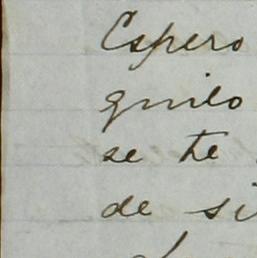 Espero
quilo
se te
de si